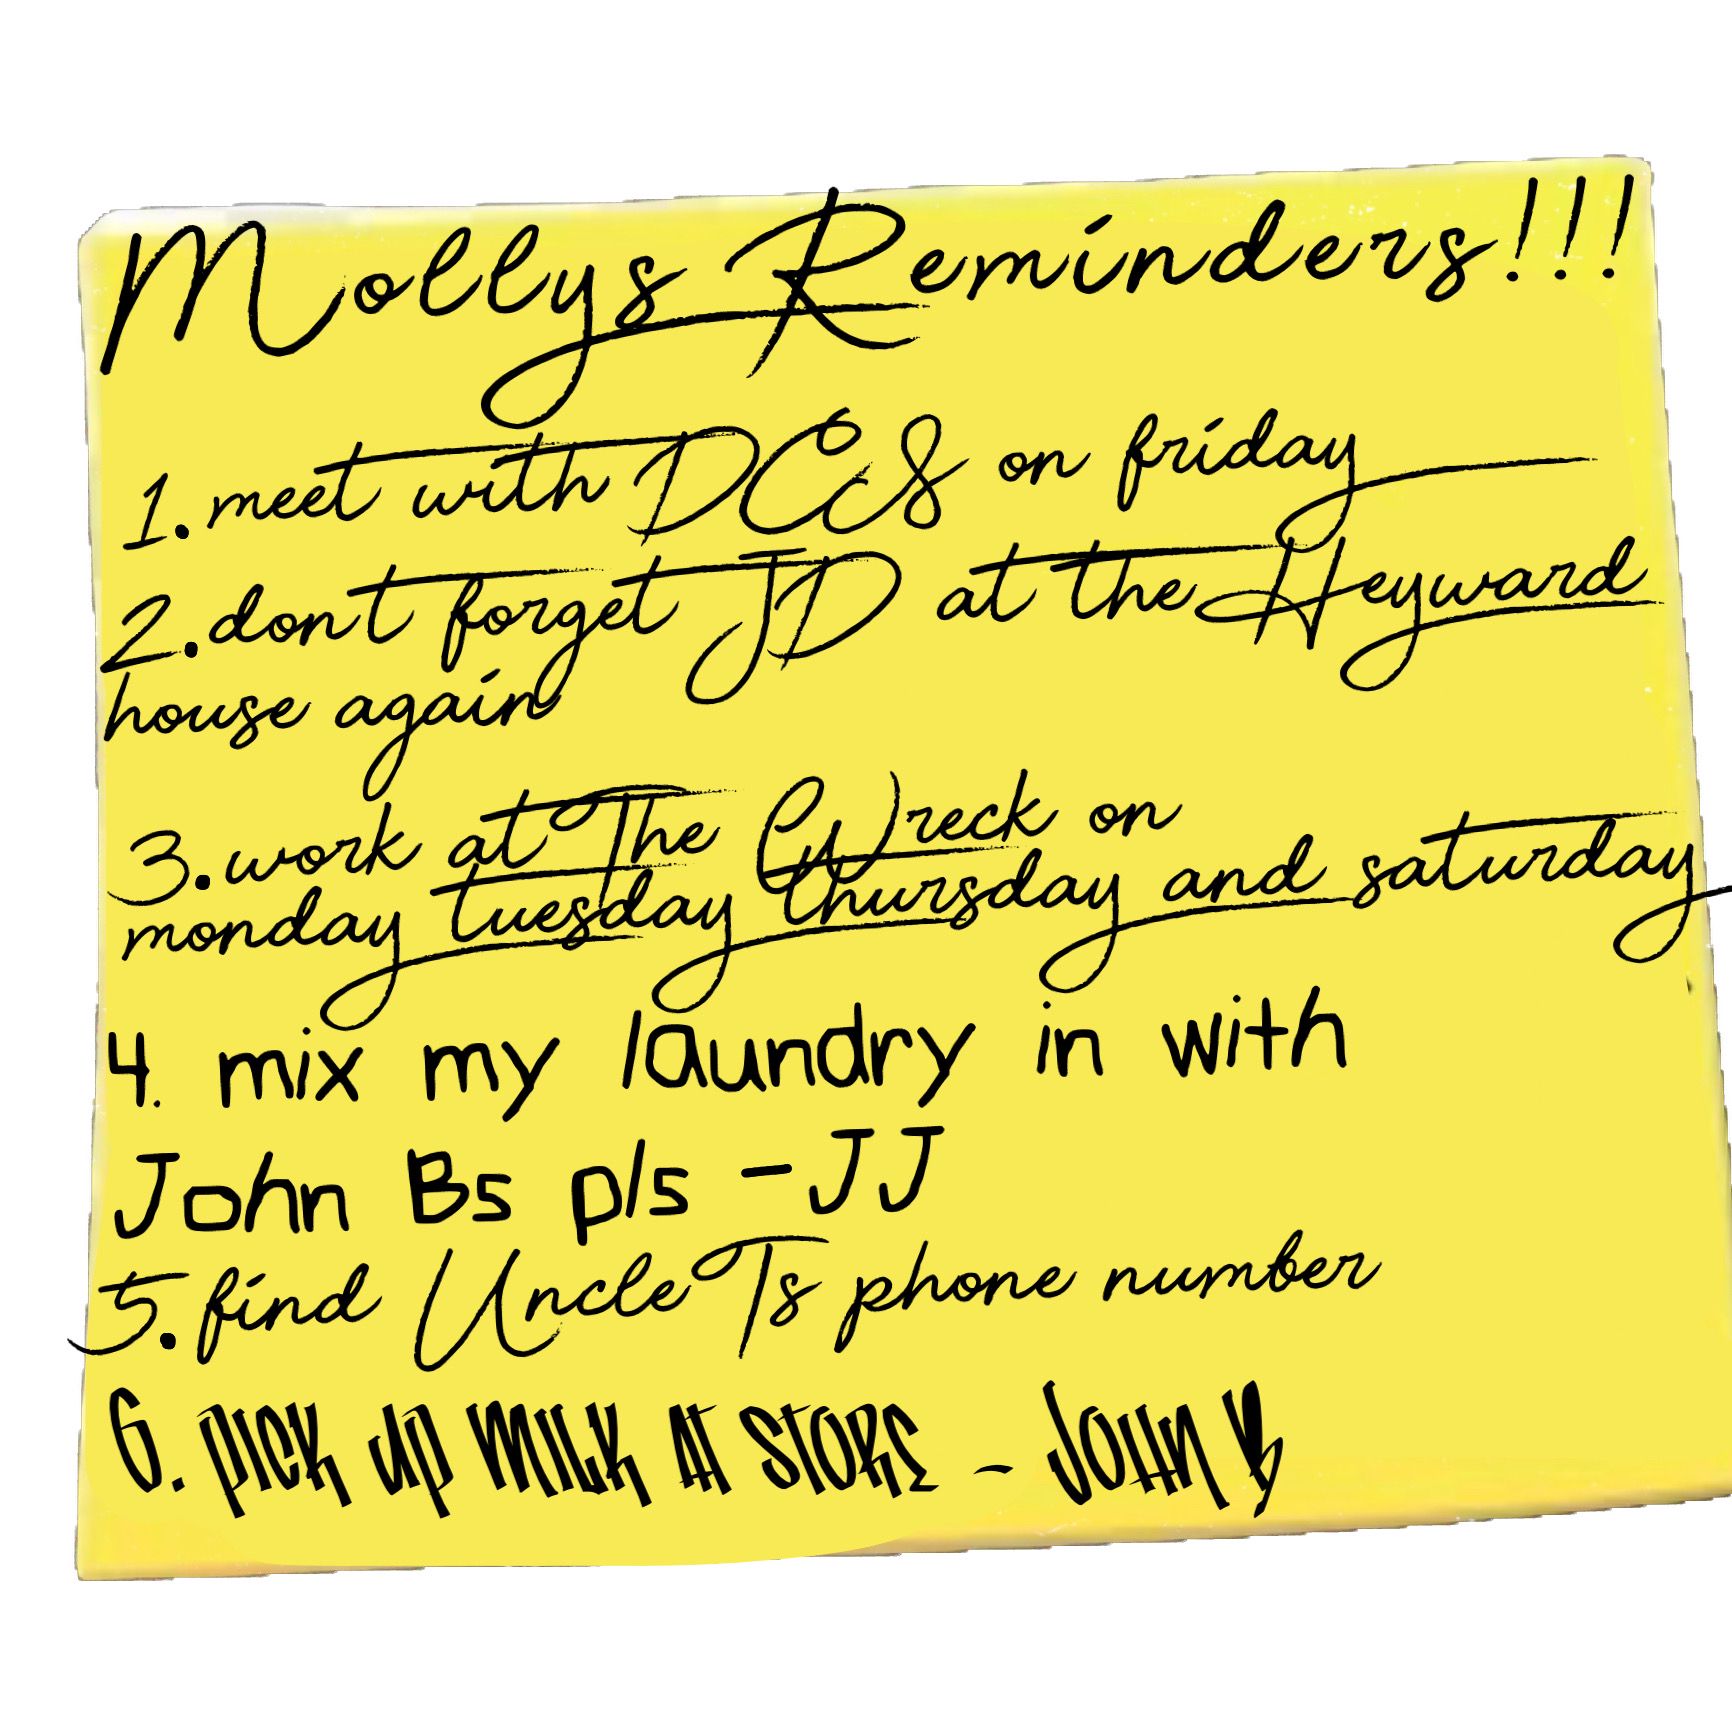 Mollys Reminders!!!
1. meet with DCS on friday
2. dont forget JD at the Heyward
house again
3. work at The Wreck on
monday tuesday thursday and saturday
4. mix my laundry in with
John Bs pls -JJ
5. find Uncle Ts phone number
6. PICK UP MILK AT STORE - JOHN B